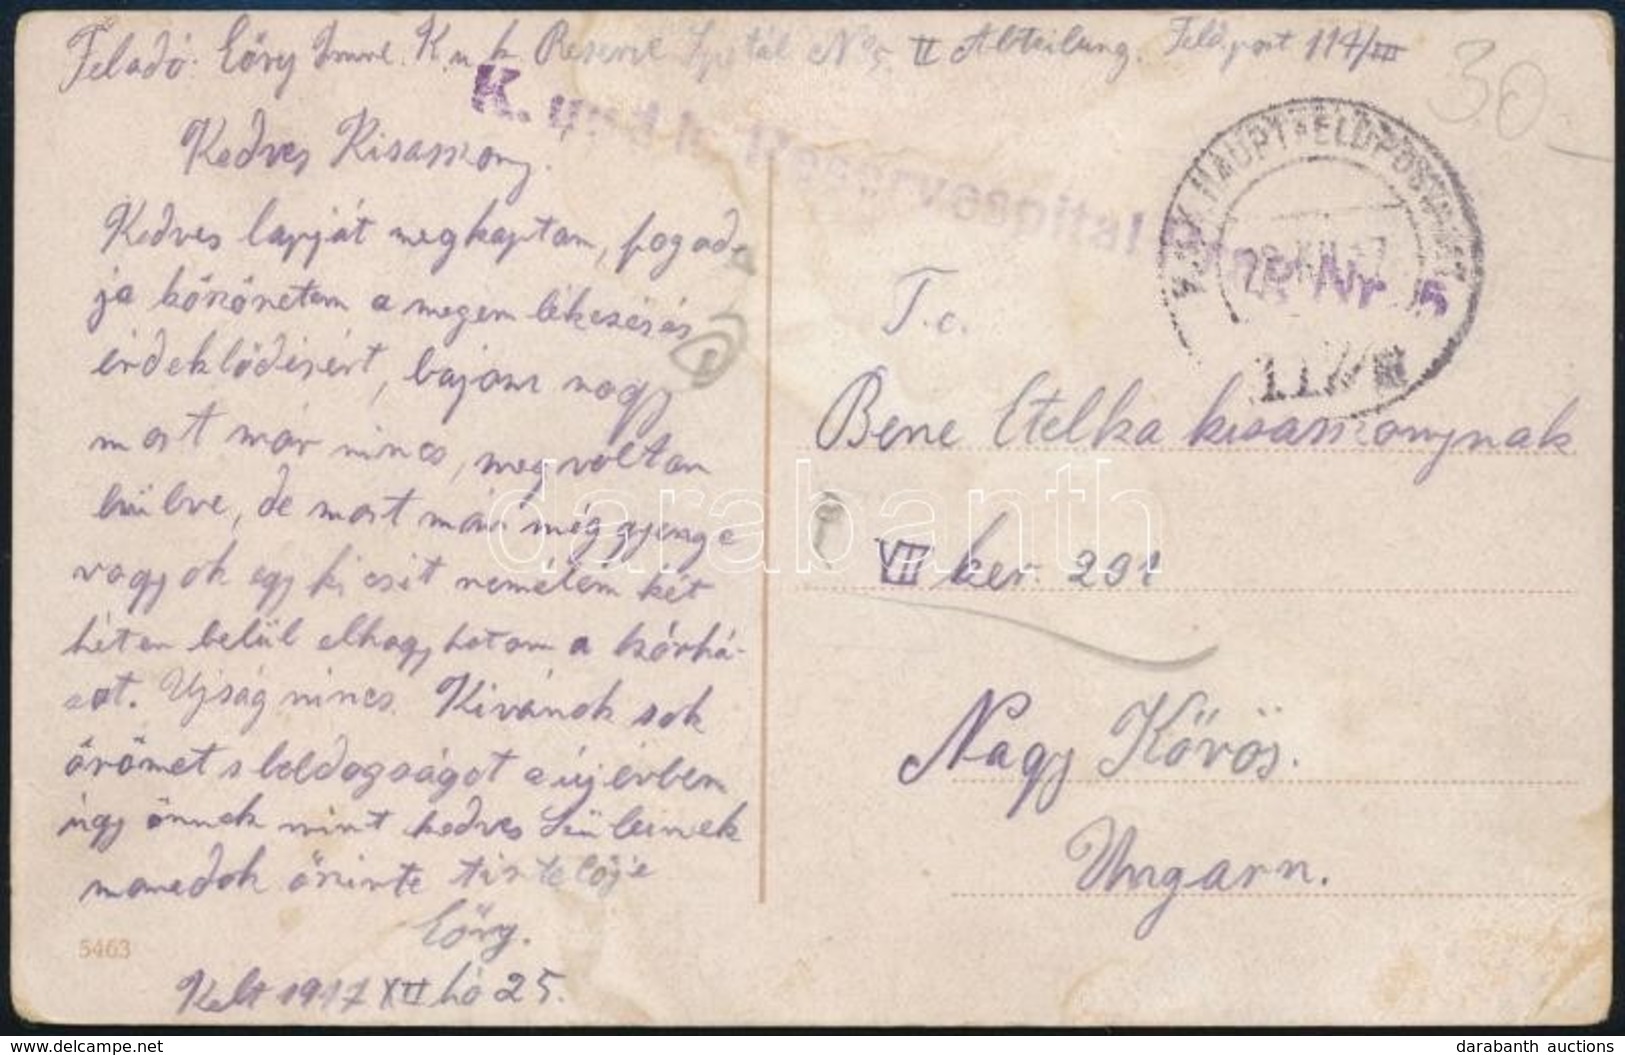 Feladó: Eőry Imre. K. u. k. Reserve Spitál No 5. II Abteilung. Feldpost 117/III
30.-
K. und k. Reservespital Nr. 5
K.u.K. HAUPTFELDPOSTAMT
28. XII. 17
117/III
Kedves Kisasszony.
Kedves lapját megkaptam, fogad-
ja köszönetem a megemlékezés és
érdeklődésért, bajom nagy
most már nincs, meg voltam
hülve, de most már még gyenge
vagyok egy kicsit remélem két
héten belül elhagyhatom a kórhá-
zat. Ujság nincs. Kivánok sok
örömet s boldogságot az új évben
úgy önnek mint kedves Szüleinek
maradok őszinte tisztelője
Eőry.
Kelt 1917 XII hó 25.
5463
T. c.
Bene Etelka kisasszonynak
VII ker. 291
Nagy Kőrös.
Ungarn.
darabanth
delcampe.net
darabanth auctions